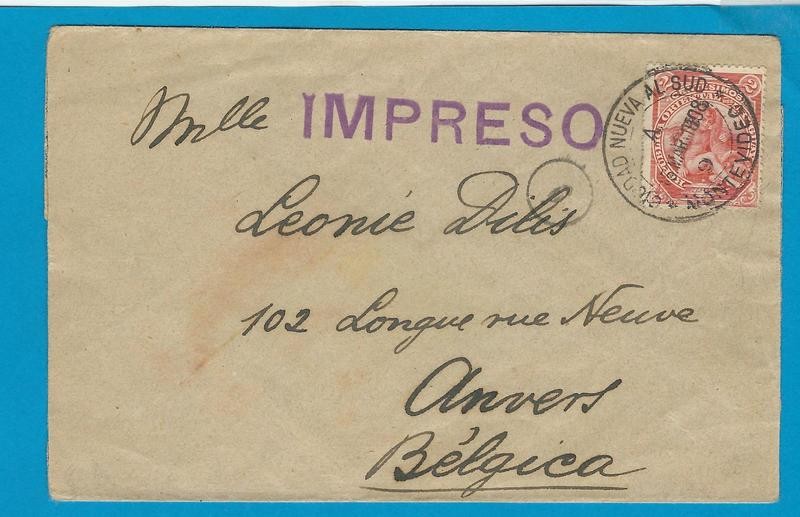 Mlle IMPRESO
Leonie Dilis
102 Longue rue Neuve
Anvers
Bélgica
CIUDAD NUEVA AL SUD * MONTEVIDEO *
A
MAR 08
2 2